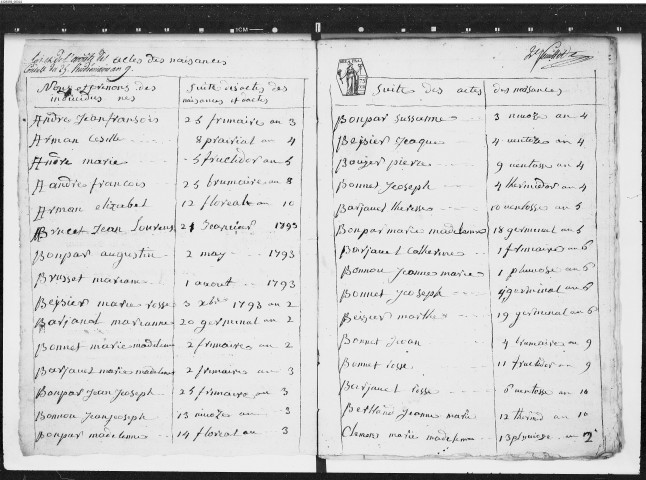 actes des naisances
Noms et prenoms des
individus nés
Suite des actes des
naisances et dactes
Andre Jean fransois 25 frimaire an 3
Arman Cesille 8 prairial an 4
Andre marie 5 fruclidor an 5
Aandre francois 25 brumaire an 8
Arman elizabet 12 floreal an 10
Brucet Jean Lourens 21 Jeanvier 1793
Bonpar augustin 2 may 1793
Brusset mariane 1 aout 1793
Beysier marie rosse 3 xbre 1793 an 2
Barjanot marianne 20 germinal an 2
Bonnet marie madelene 2 frimaire an 2
Barjauet marie madelene 2 frimaire an 3
Bonpar Jean Joseph 25 frimaire an 3
Bonnou Jean Joseph 13 nivoze an 3
Bonpar madelenne 14 floreal an 3
Suite des actes des naisances
Bonpar sussanne 3 nivoze an 4
Beysier Jeaque 4 ventoze an 4
Bouyer piere 9 ventosse an 4
Bonnet Joseph 4 thermidor an 4
Barjauet theresse 10 ventosse an 5
Bonpar marie madelenne 18 germinal an 5
Barjauet Catherine 1 frimaire an 6
Bonnou Jeanne marie 1 pluviose an 6
Bonnet Joseph germinal an 6
Beisier marthe 19 germinal an 6
Bonnet Jean 4 brumaire an 9
Bonnet rosse 11 fruclidor an 9
Barjauet rosse 6 ventosse an 10
Jeanne marie 12 thermid an 10
Clemens marie madelenne 13 pluviose an 2